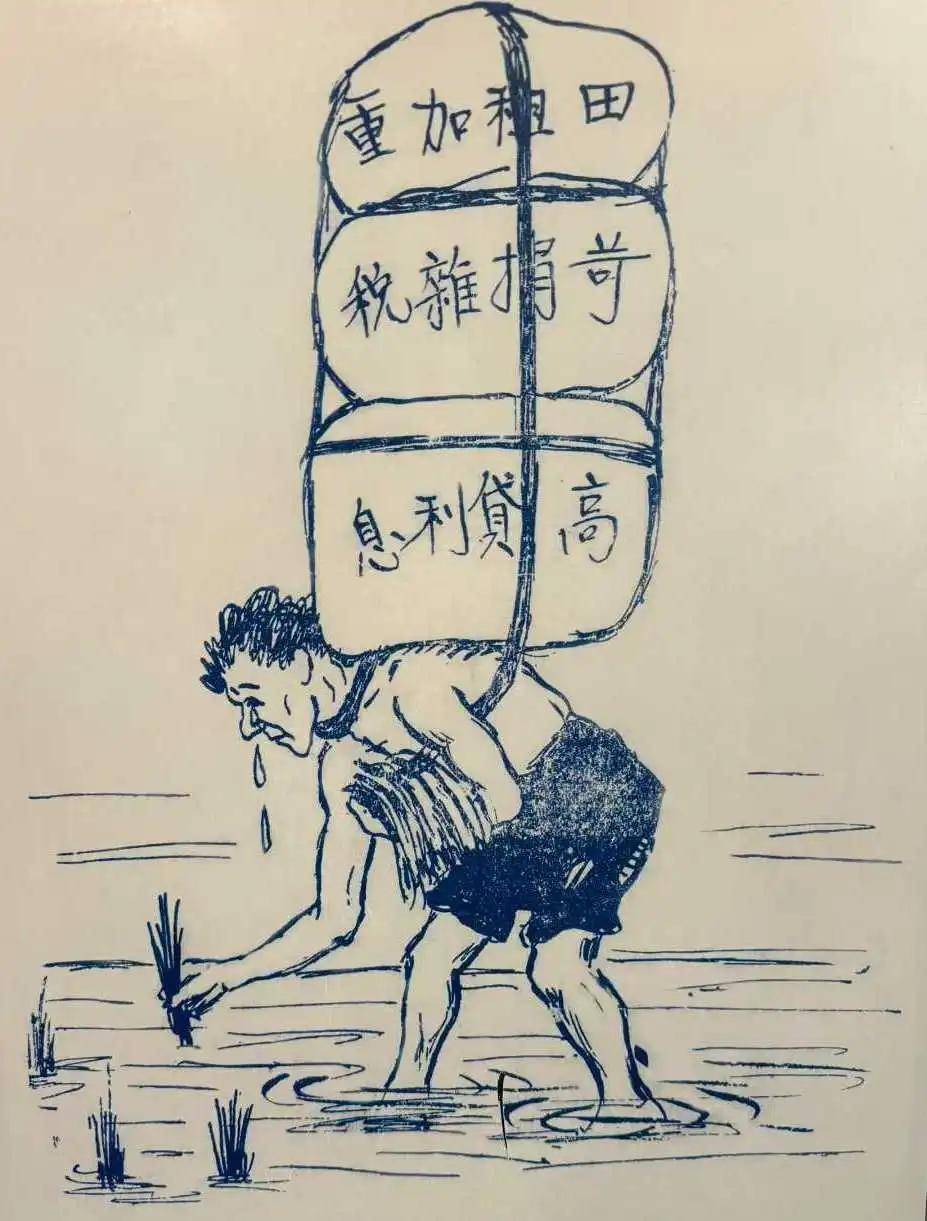 田租加重
苛捐雜税
高貸利息